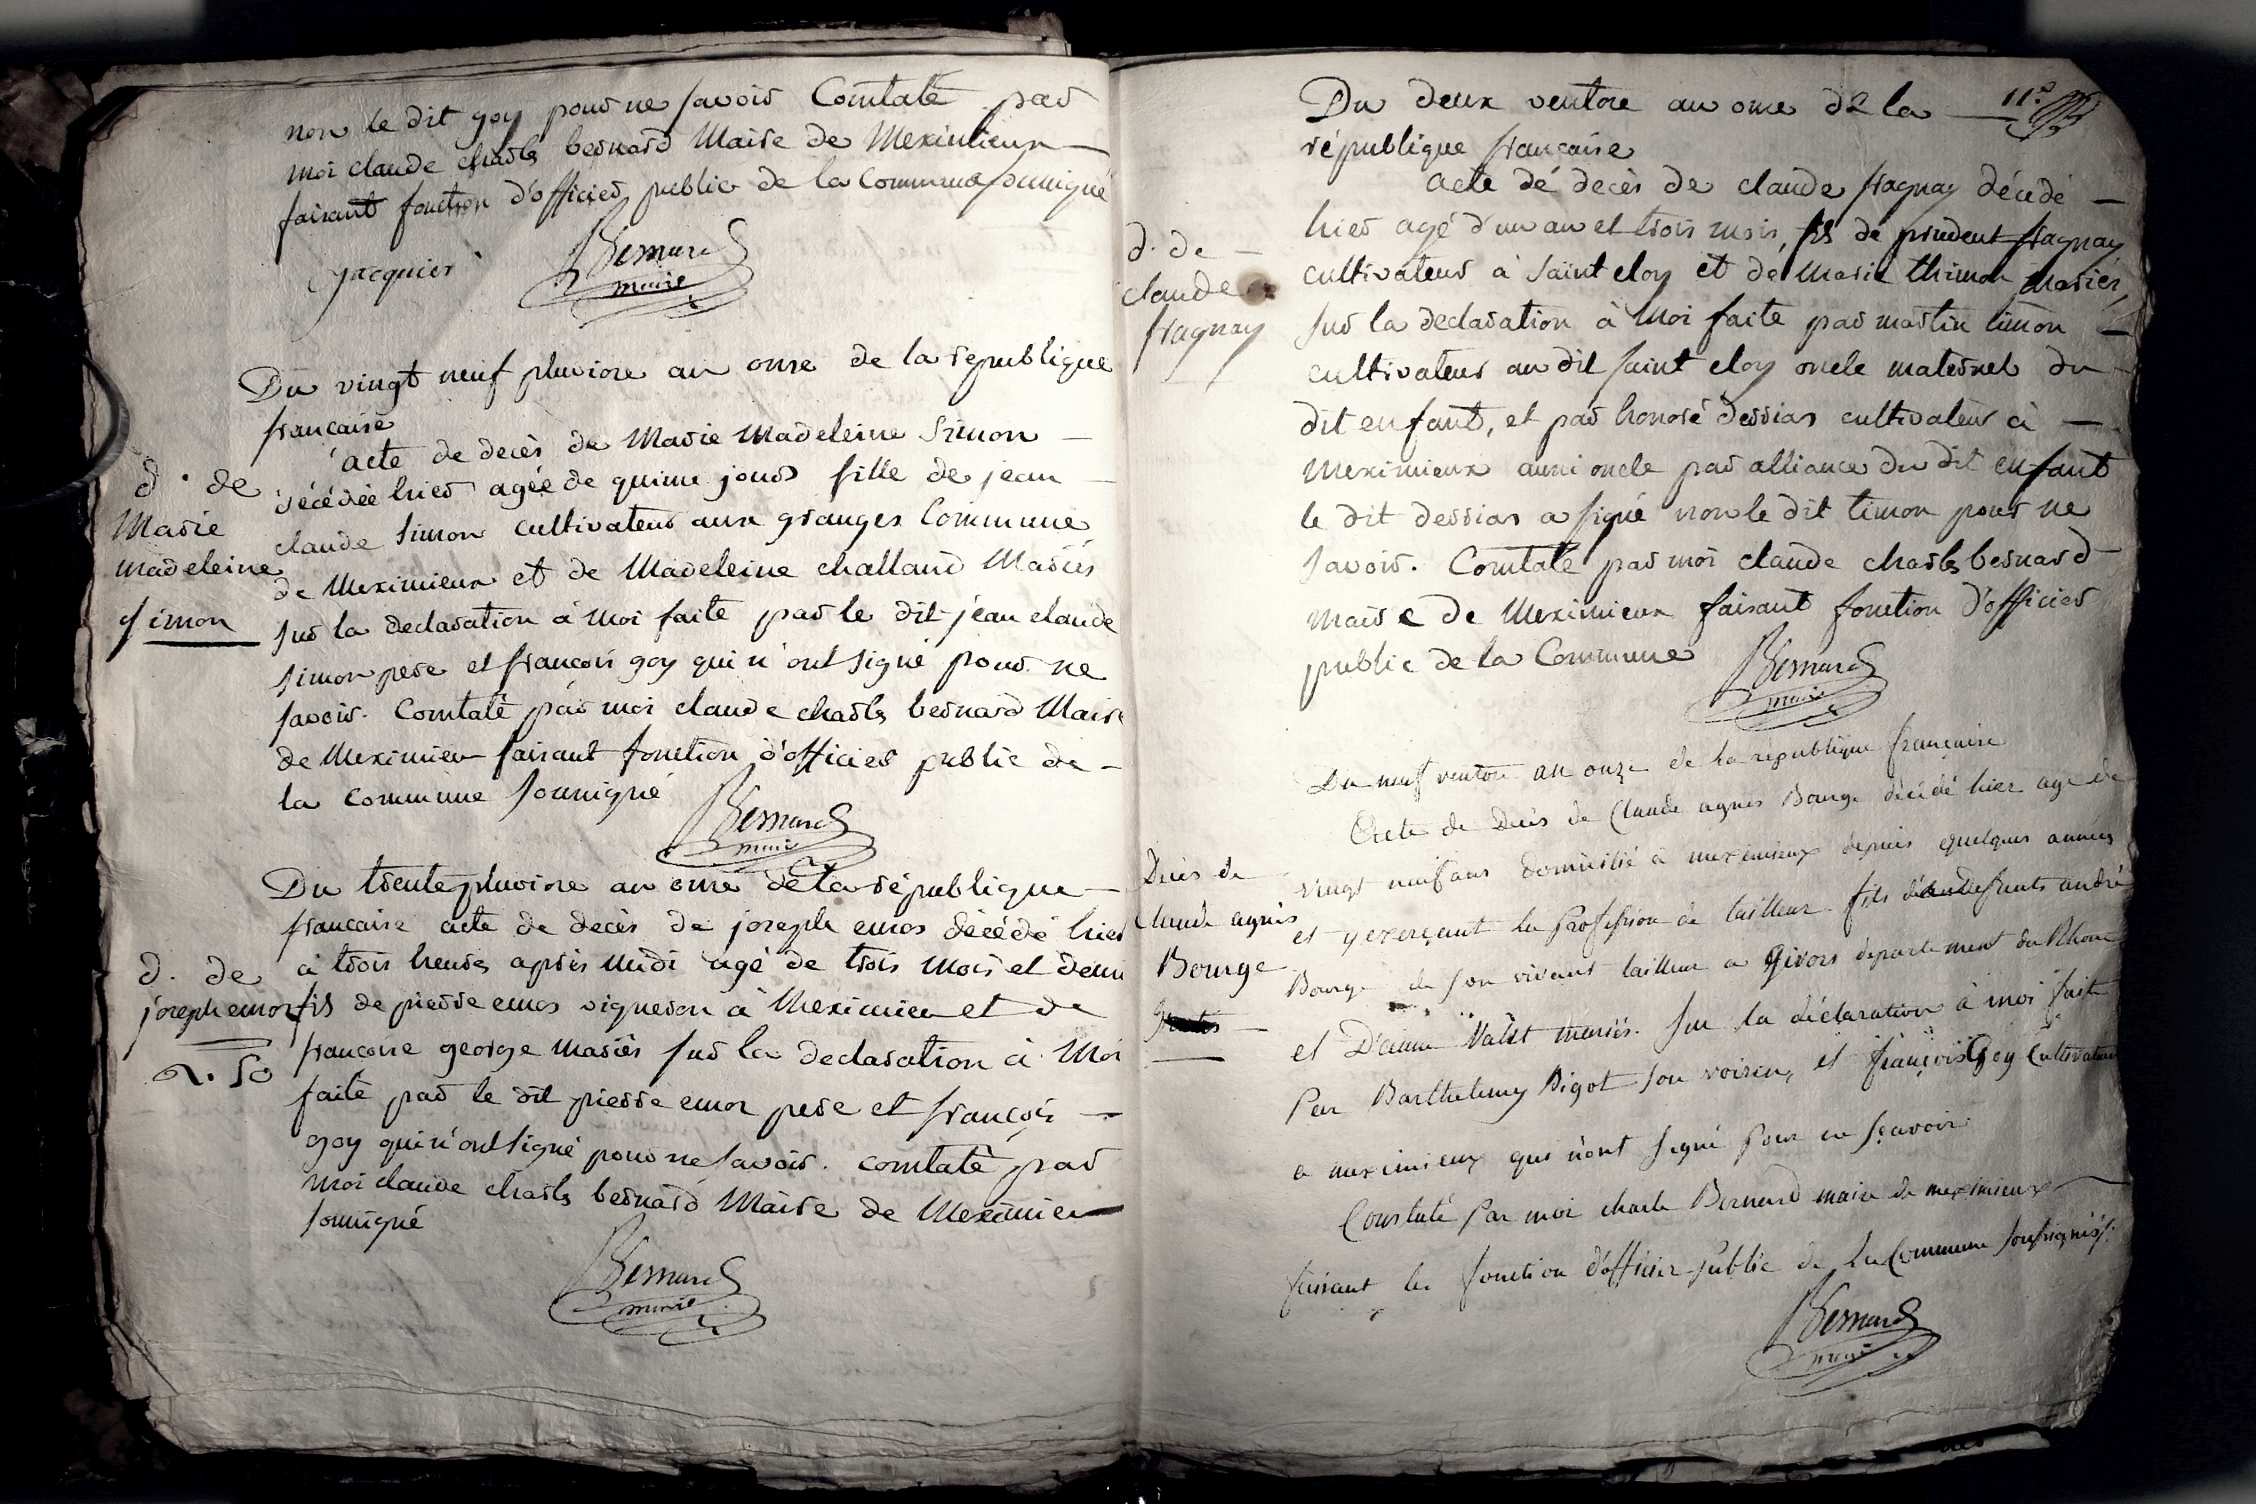 non le dit goy pour ne savoir Constaté par
moi claude charles bernard Maire de Meximieux
faisant fonction d'officier public de la Commune soussigné
Jacquier Bernard
maire
Du vingt neuf pluviose an onse de la republique
francaise
acte de decès de Marie Madeleine Simon
d. de
Marie
madeleine
simon
décédée hier agée de quinse jours fille de jean
claude simon cultivateur aux granges Commune
de Meximieux et de Madeleine challand Mariés
sur la declaration à Moi faite par le dit jean claude
simon pere et françois goy qui n'ont signé pour ne
savoir. Constaté par moi claude charles bernard Maire
de Meximieu faisant fonction d'officier public de
la commune soussigné
Bernard
maire
Du trente pluviose an onse de la république
francaise acte de decès de joseph emos décédé hier
d. de
joseph emos
à trois heures après midi agé de trois mois et demi
fils de pierre emos vigneron à Meximieu et de
francoise george mariés sur la declaration à Moi
faite par le dit pierre emos pere et françois
goy qui n'ont signé pour ne savoir. constaté par
moi claude charles bernard Maire de Meximieu
soussigné
Bernard
maire
Du deux ventose an onse de la 11e
république francaise
acte de decès de claude fragnay décédé
d. de
claude
fragnay
hier agé d'un an et trois mois, fils de prudent fragnay
cultivateur à saint eloy et de Marie thimon mariés,
sur la declaration à Moi faite par martin timon
cultivateur au dit saint eloy oncle maternel du
dit enfant, et par honoré derrias cultivateur à
Meximieux aussi oncle par alliance du dit enfant
le dit derrias a signé non le dit timon pour ne
savoir. Constaté par moi claude charles bernard
maire de Meximieux faisant fonction d'officier
public de la Commune
Bernard
maire
Du neuf ventose an onze de la republique française
Acte de Decès de Claude agnès Bourge décédé hier age de
Decès de
Claude agnès
Bourge
vingt neuf ans domicilié à meximieux depuis quelques années
et y exerçant la Profession de tailleur fils de defunts andré
Bourge de son vivant tailleur a Givors departement du Rhone
et D'anne Valet mariés. sur la déclaration à moi faite
Par Barthelemy Bigot son voisin, et françois Goy Cultivateur
a meximieux qui n'ont signé Pour ne sçavoir
Constaté Par moi charle Bernard maire de meximieux
faisant les fonction d'officier public de la Commune soussigné
Bernard
maire